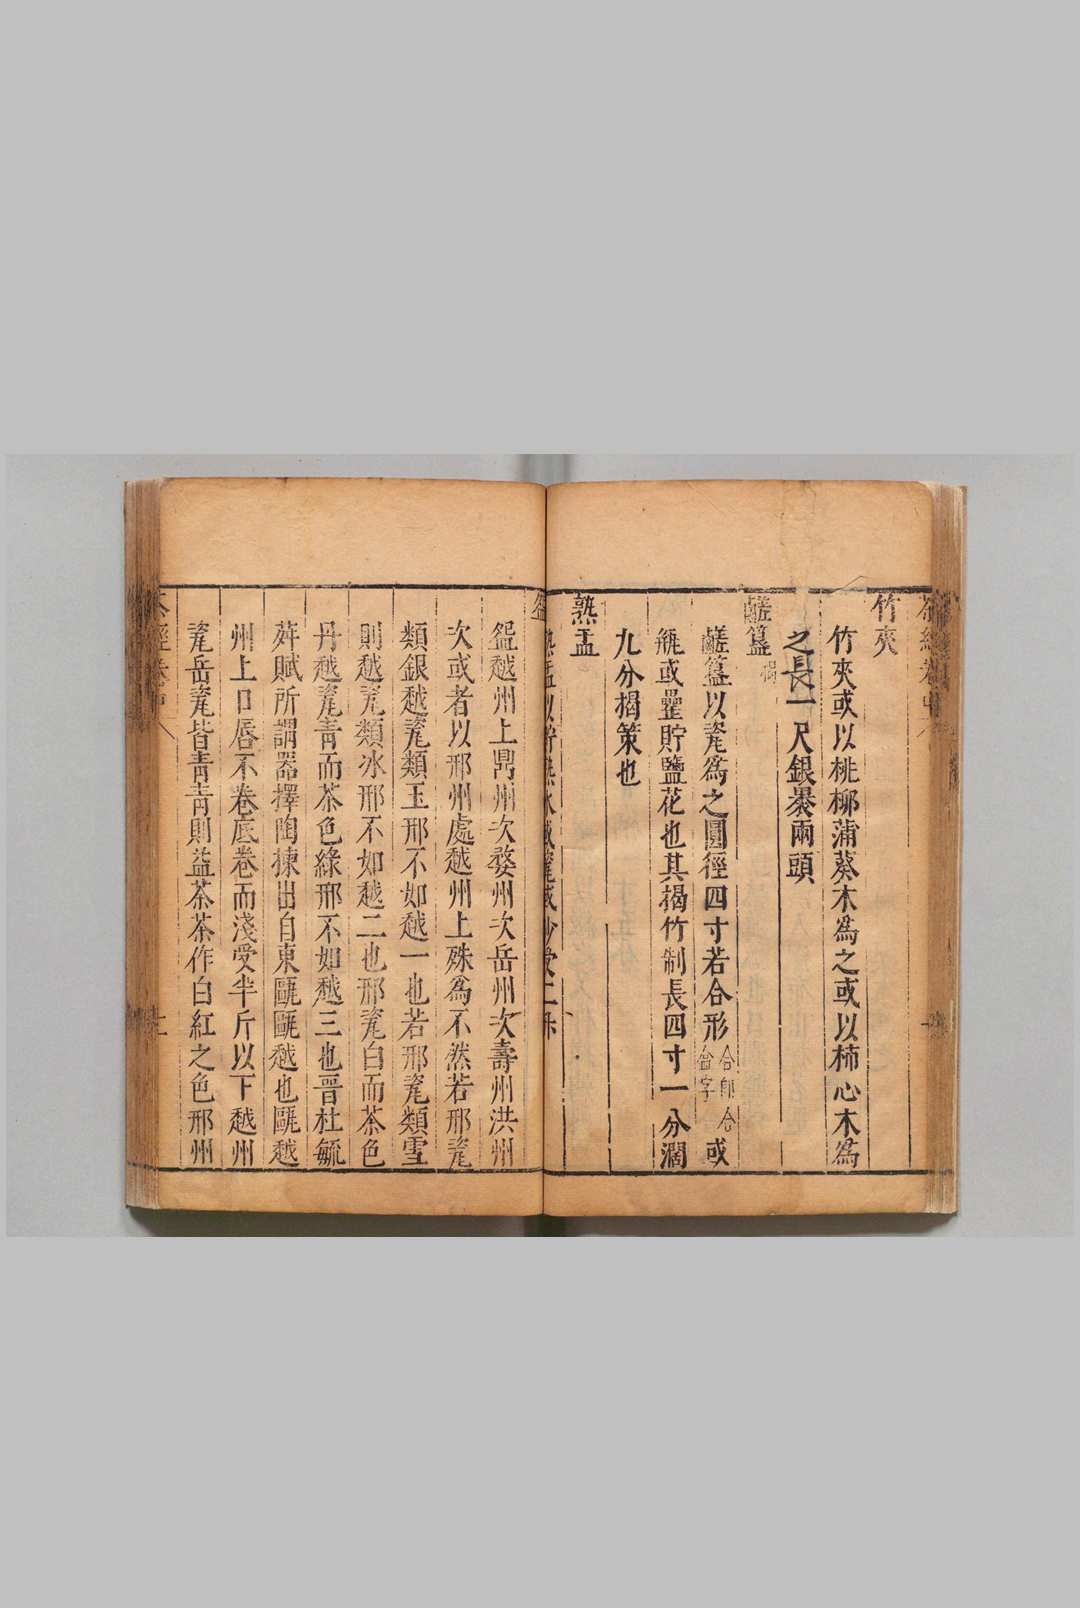 竹夾
竹夾或以桃柳蒲葵木爲之或以柿心木爲
之長一尺銀裹兩頭
鹺簋揭
鹺簋以瓷爲之圓徑四寸若合形合即今盒字或
瓶或罍貯鹽花也其揭竹制長四寸一分濶
九分揭策也
熟盂
熟盂以貯熟水或瓷或沙受二升
盌
盌越州上鼎州次婺州次岳州次壽州洪州
次或者以邢州處越州上殊爲不然若邢瓷
類銀越瓷類玉邢不如越一也若邢瓷類雪
則越瓷類冰邢不如越二也邢瓷白而茶色
丹越瓷青而茶色綠邢不如越三也晉杜毓
荈賦所謂器擇陶揀出自東甌甌越也甌越
州上口唇不卷底卷而淺受半斤以下越州
瓷岳瓷皆青青則益茶茶作白紅之色邢州
茶經卷中